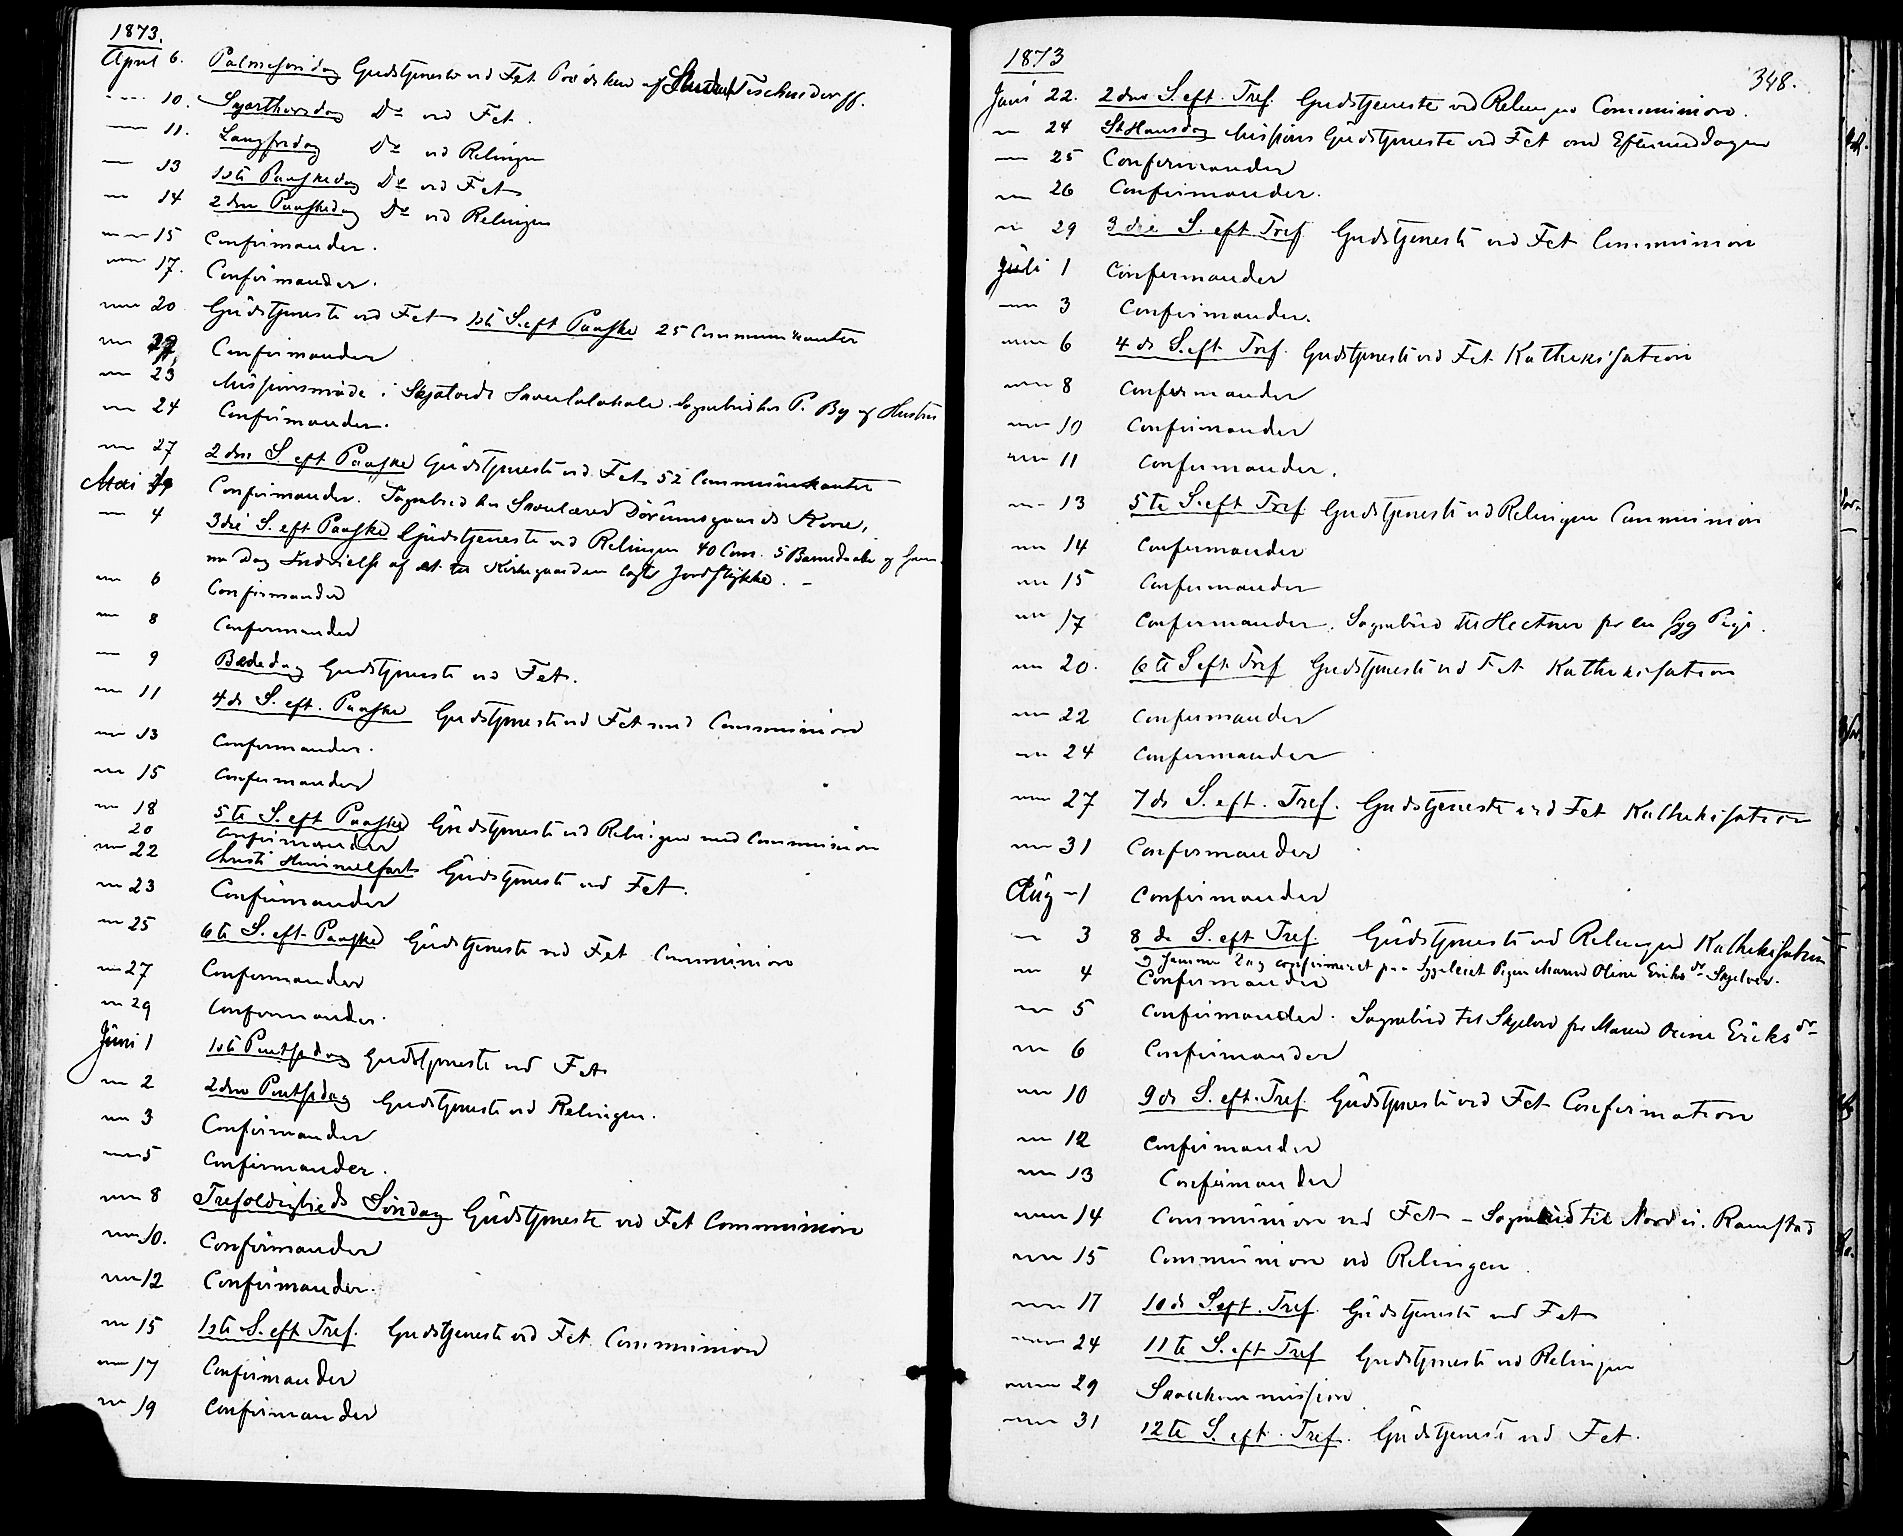 1873.
April 6. Palmesøndag Gudstjeneste ved Fet. Prædiken af Student Tischendorff.
— 10. Skjærthorsdag Do ved Fet.
— 11. Langfredag Do ved Relingen
— 13 1ste Paaskedag Do ved Fet
— 14 2den Paaskedag Do ved Relingen
— 15 Confirmander.
— 17. Confirmander.
— 20 Gudstjeneste ved Fet 1ste S. eft Paaske 25 Communikanter
— 22 Confirmander
— 23 Missionsmøde i Skjatvedt Skolelokale. Sognebud hos P. By og Hustru
— 24 Confirmander.
— 27 2den S. eft Paaske Gudstjeneste ved Fet 52 Communikanter
Mai Confirmander. Sognebud hos Skolelærer Dørumsgaards Kone,
— 4 3die S. eft Paaske Gudstjeneste ved Relingen 40 Com. 5 Barnedaabe og sam-
me Dag Indvielse af et til Kirkegaarden lagt Jordstykke. —
— 6 Confirmander
— 8 Confirmander
— 9 Bededag Gudstjeneste ved Fet.
— 11 4de S. eft. Paaske Gudstjeneste ved Fet med Communion
— 13 Confirmander.
— 15 Confirmander
— 18 5te S. eft Paaske Gudstjeneste ved Relingen med Communion
20 Confirmander
— 22 Christi Himmelfart Gudstjeneste ved Fet.
— 23 Confirmander
— 25 6te S. eft. Paaske Gudstjeneste ved Fet Communion
— 27 Confirmander
— 29 Confirmander.
Juni 1 1ste Pintsedag Gudstjeneste ved Fet
— 2 2den Pintsedag Gudstjeneste ved Relingen.
— 3 Confirmander
— 5 Confirmander.
— 8 Trefoldigheds Søndag Gudstjeneste ved Fet Communion
— 10. Confirmander
— 12 Confirmander.
— 15 1ste S. eft Tref. Gudstjeneste ved Fet. Communion
— 17 Confirmander
— 19 Confirmander
1873
348.
Juni 22. 2den S. eft. Tref. Gudstjeneste ved Relingen Communion.
— 24 St Hansdag Missions Gudstjeneste ved Fet om Eftermiddagen
— 25 Confirmander
— 26 Confirmander.
— 29 3die S. eft Tref Gudstjeneste ved Fet Communion
Juli 1 Confirmander
— 3 Confirmander.
— 6 4de S. eft. Tref. Gudstjeneste ved Fet Kathekisation
— 8 Confirmander
— 10 Confirmander
— 11 Confirmander.
— 13 5te S. eft Tref Gudstjeneste ved Relingen Communion
— 14 Confirmander
— 15 Confirmander
— 17 Confirmander. Sognebud til Hectner for en syg Pige.
— 20. 6te S eft Tref Gudstjeneste ved Fet Kathekisation
— 22 Confirmander
— 24 Confirmander
— 27 7de S. eft. Tref. Gudstjeneste ved Fet Kathekisation
— 31 Confirmander
Aug — 1 Confirmander
— 3 8de S. eft Tref. Gudstjeneste ved Relingen Kathekisation
Samme Dag confirmeret paa Sygeleiet Pigen Maren Oline Eriksdr Skjelver.
— 4 Confirmander
— 5 Confirmander. Sognebud til Skjelver for Maren Oline Eriksdr
— 6 Confirmander
— 10 9de S. eft. Tref. Gudstjeneste ved Fet Confirmation
— 12 Confirmander
— 13 Confirmander
— 14 Communion ved Fet — Sognebud til Nordre Ramstad
— 15 Communion ved Relingen.
— 17 10de S. eft. Tref. Gudstjeneste ved Fet
— 24 11te S. eft Tref Gudstjeneste ved Relingen
— 29 Skolekommission
— 31 12te S. eft. Tref. Gudstjeneste ved Fet.